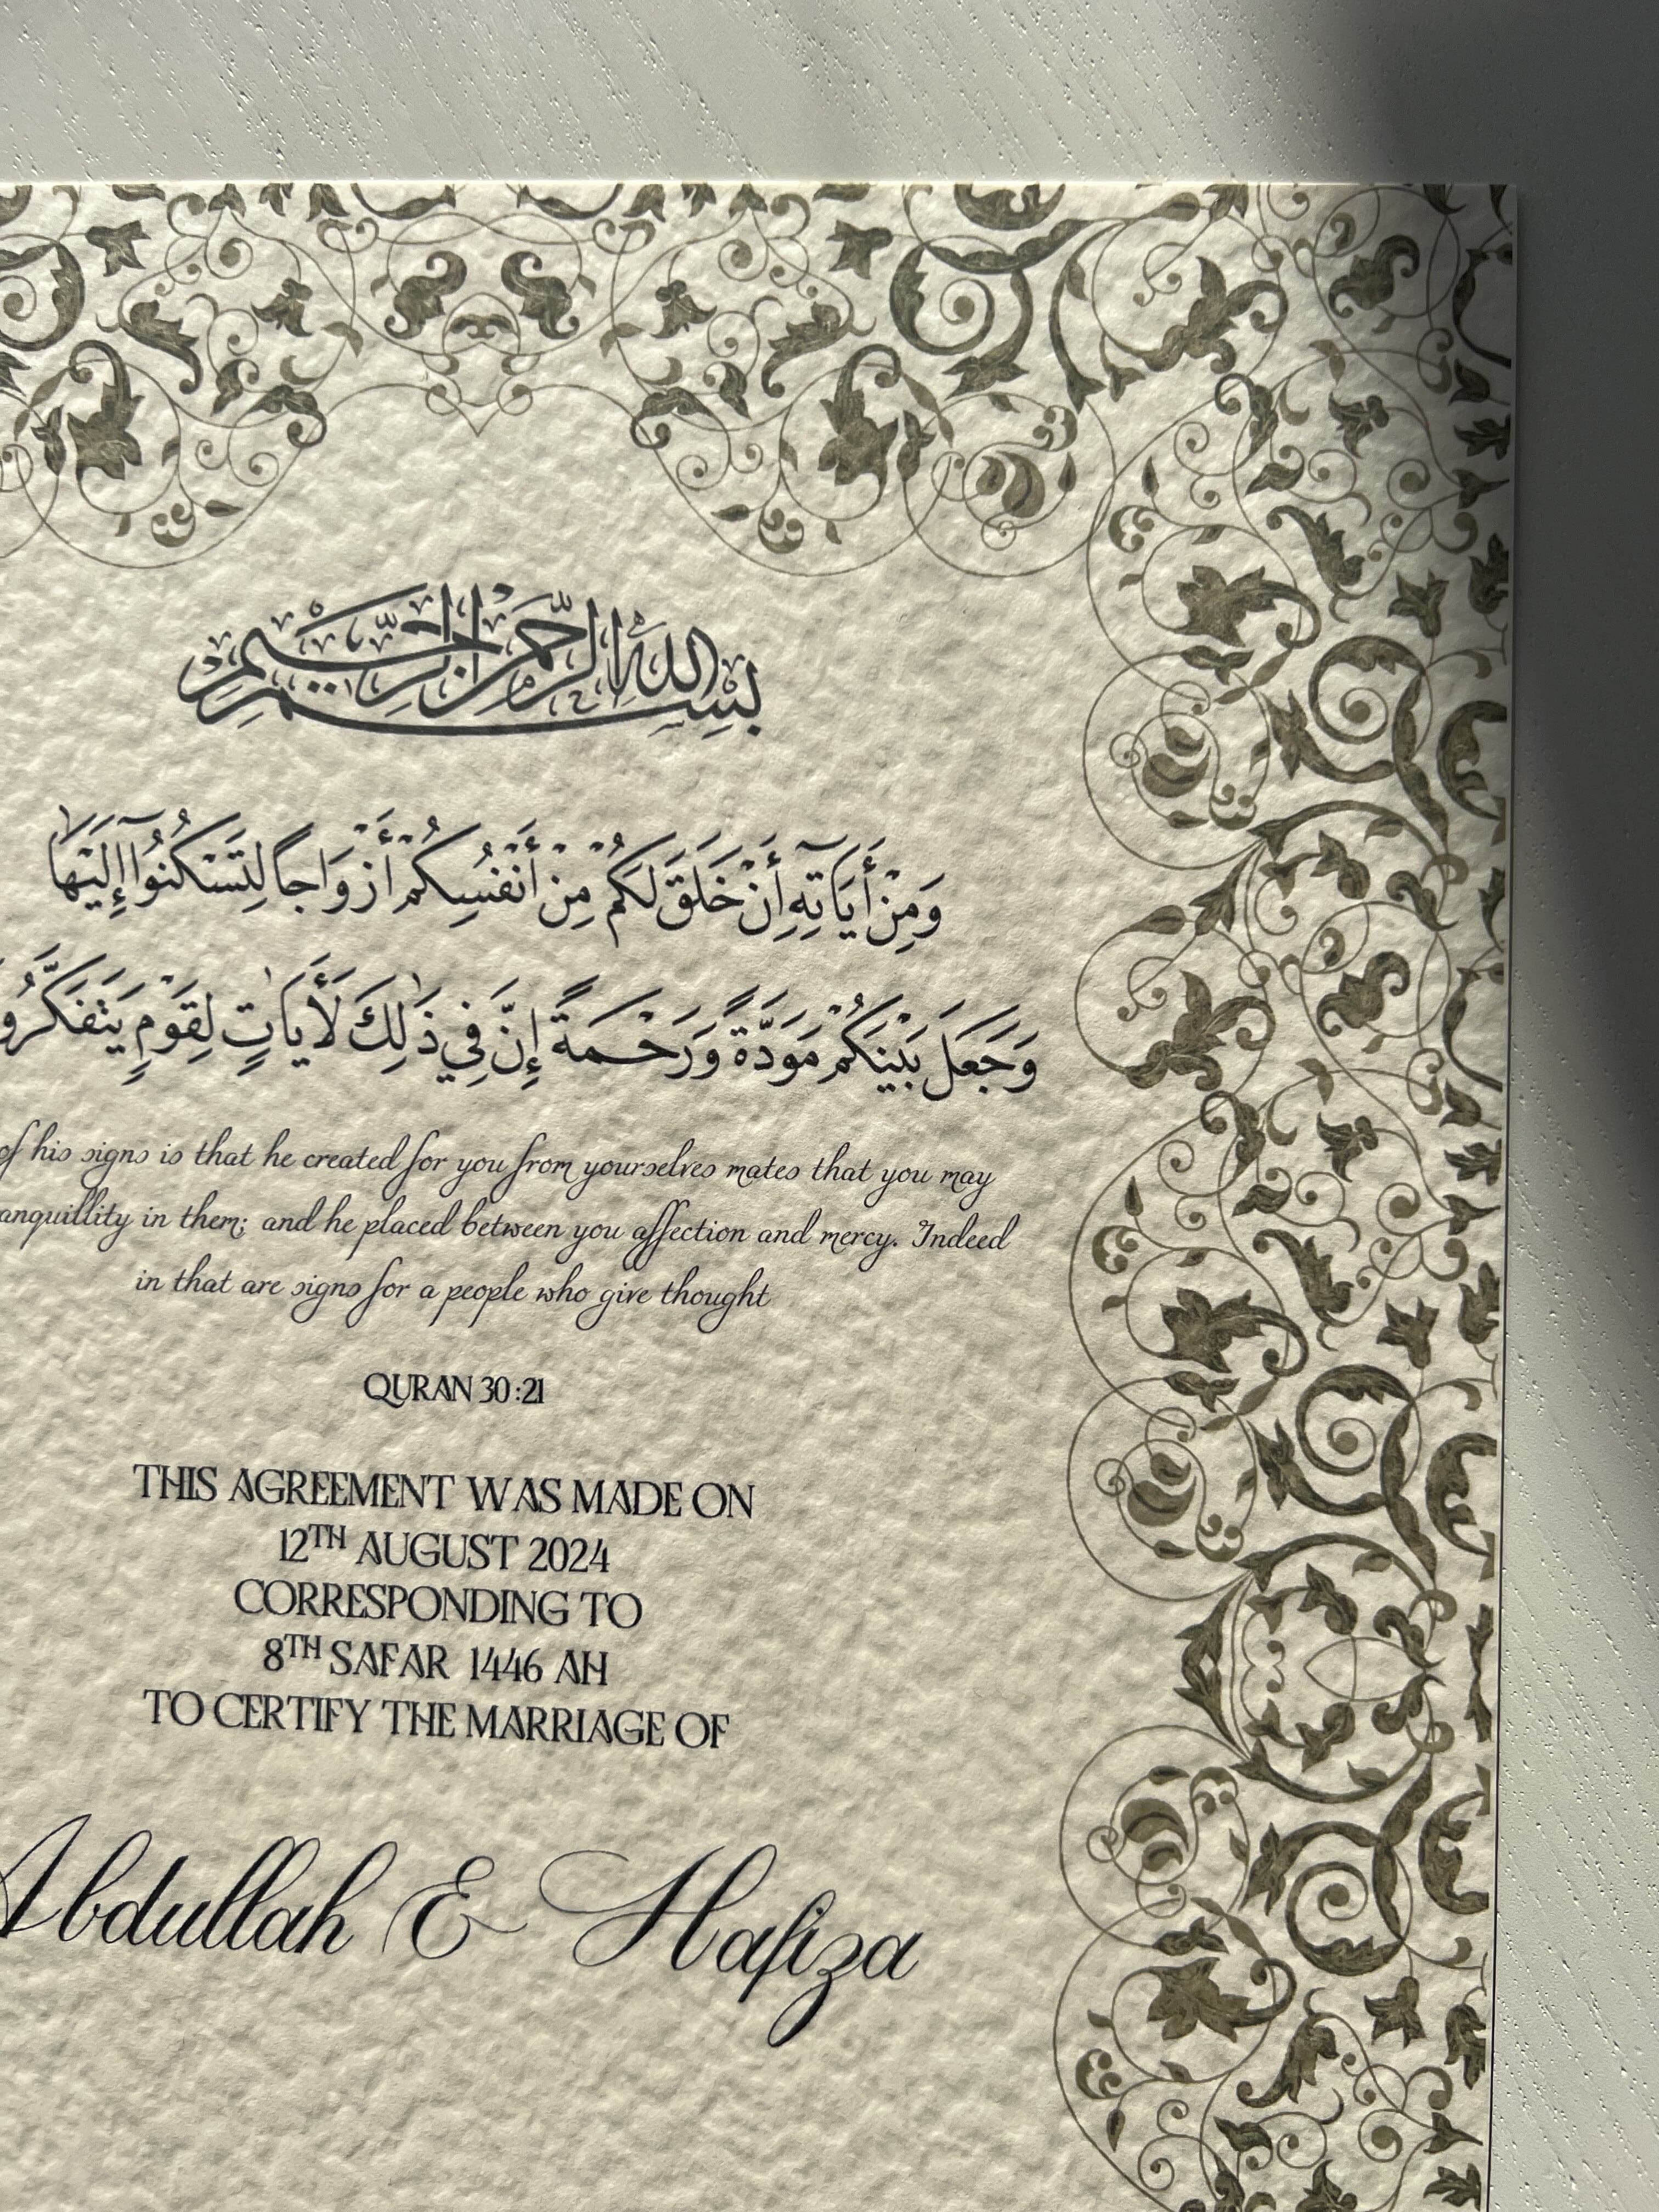 بسم الله الرحمن الرحيم
وَمِنْ أَيَاتِهِ أَنْ خَلَقَ لَكُمْ مِنْ أَنْفُسِكُمْ أَزْوَاجًا لِتَسْكُنُوا إِلَيْهَا
وَجَعَلَ بَيْنَكُمْ مَوَدَّةً وَرَحْمَةً إِنَّ فِي ذَٰلِكَ لَأَيَاتٍ لِقَوْمٍ يَتَفَكَّرُو
of his signs is that he created for you from yourselves mates that you may
anquillity in them; and he placed between you affection and mercy. Indeed
in that are signs for a people who give thought
QURAN 30:21
THIS AGREEMENT WAS MADE ON
12TH AUGUST 2024
CORRESPONDING TO
8TH SAFAR 1446 AH
TO CERTIFY THE MARRIAGE OF
Abdullah & Hafiza